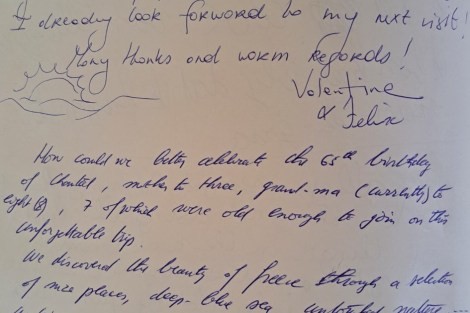 I already look forward to my next visit!
Many thanks and warm regards!
Valentine
& Felix
How could we better celebrate the 65th birthday
of Chantal, mother to three, grand-ma (currently) to
eight (8), 7 of which were old enough to join on this
unforgettable trip.
We discovered the beauty of Greece through a selection
of nice places, deep-blue sea, nature